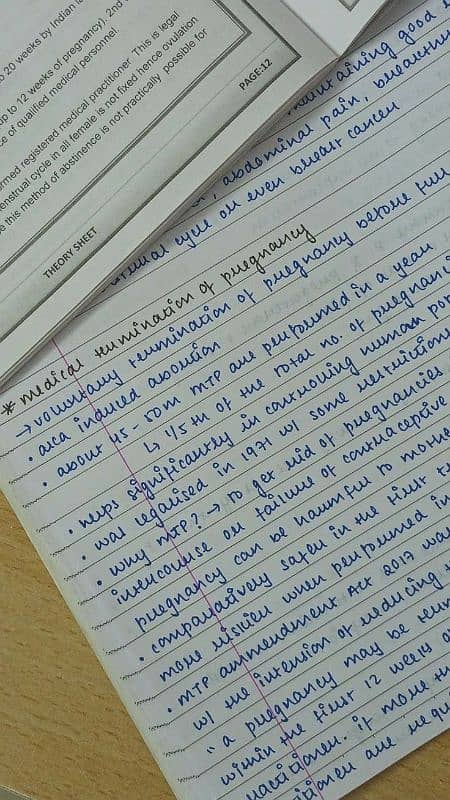 20 weeks by Indian la
up to 12 weeks of pregnancy). 2nd
ce of qualified medical personnel
ormed registered medical practitioner This is legal
enstrual cycle in all female is not fixed hence ovulation
e this method of abstinence is not practically possible for
PAGE:12
THEORY SHEET
maintaining good
, abdominal pain, breakthr
cycle or even breast cancer
* medical termination of pregnancy
→ voluntary termination of pregnancy before full
• aka induced abortion
• about 45-50m MTP are performed in a year
↳ 1/5th of the total no. of pregnanci
• helps significantly in controlling human pop
• was legalised in 1971 w/ some restrictions
• why MTP? → to get rid of pregnancies
intercourse or failure of contraceptive
pregnancy can be harmful to mothe
• comparatively safer in the first t
more riskier when performed in
• MTP ammendment Act 2017 was
w/ the intension of reducing
"a pregnancy may be term
within the first 12 weeks
practitioner. if more th
titioner are requi